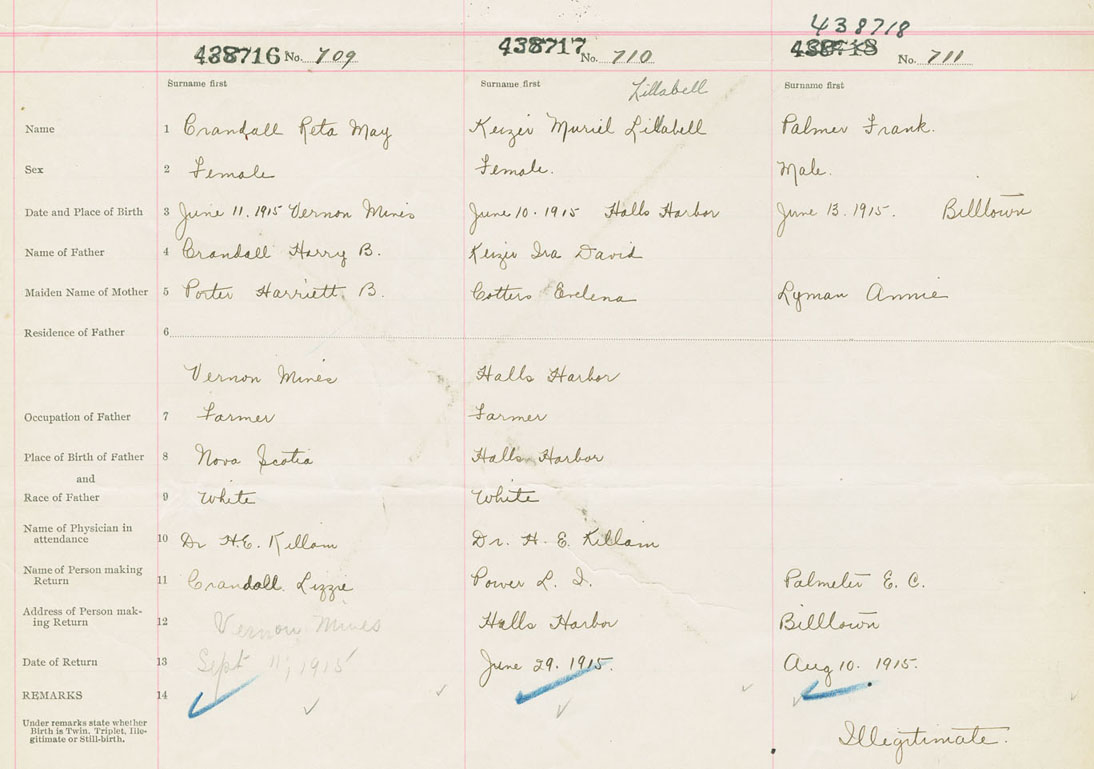 438718
438716 No. 709 438717 No. 710 438718 No. 711
Surname first Surname first Lillabell Surname first
Name 1 Crandall Reta May Keizer Muriel Lillabell Palmer Frank.
Sex 2 Female Female. Male.
Date and Place of Birth 3 June 11. 1915 Vernon Mines June 10. 1915 Halls Harbor June 13. 1915. Billtown
Name of Father 4 Crandall Harry B. Keizer Ira David
Maiden Name of Mother 5 Porter Harriett B. Cotters Evelena Lyman Annie
Residence of Father 6
Vernon Mines Halls Harbor
Occupation of Father 7 Farmer Farmer
Place of Birth of Father 8 Nova Scotia Halls Harbor
and
Race of Father 9 White White
Name of Physician in
attendance 10 Dr H.E. Killam Dr. H. E. Killam
Name of Person making
Return 11 Crandall Lizzie Power L. I. Palmeter E. C.
Address of Person mak-
ing Return 12 Vernon Mines Halls Harbor Billtown
Date of Return 13 Sept 11, 1915 June 29. 1915. Aug 10. 1915.
REMARKS 14
Under remarks state whether
Birth is Twin, Triplet, Ille-
gitimate or Still-birth. Illegitimate.